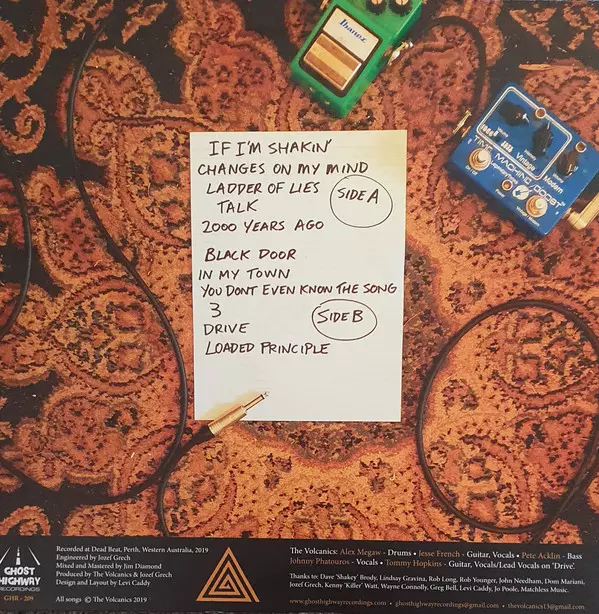 Ibanez
Vintage Modern
TIME MACHINE BOOST
IF I'M SHAKIN'
CHANGES ON MY MIND
LADDER OF LIES
TALK
SIDE A
2000 YEARS AGO
BLACK DOOR
IN MY TOWN
YOU DONT EVEN KNOW THE SONG
3
SIDE B
DRIVE
LOADED PRINCIPLE
GHOST
HIGHWAY
RECORDINGS
GHR - 209
Recorded at Dead Beat, Perth, Western Australia, 2019
Engineered by Jozef Grech
Mixed and Mastered by Jim Diamond
Produced by The Volcanics & Jozef Grech
Design and Layout by Levi Caddy
All songs © The Volcanics 2019
The Volcanics: Alex Megaw - Drums • Jesse French - Guitar, Vocals • Pete Acklin - Bass
Johnny Phatouros - Vocals • Tommy Hopkins - Guitar, Vocals/Lead Vocals on 'Drive'.
Thanks to: Dave 'Shakey' Brody, Lindsay Gravina, Rob Long, Rob Younger, John Needham, Dom Mariani,
Jozef Grech, Kenny 'Killer' Watt, Wayne Connolly, Greg Bell, Levi Caddy, Jo Poole, Matchless Music.
www.ghosthighwayrecordings.com • ghosthighwayrecordings@gmail.com • thevolcanics13@gmail.com